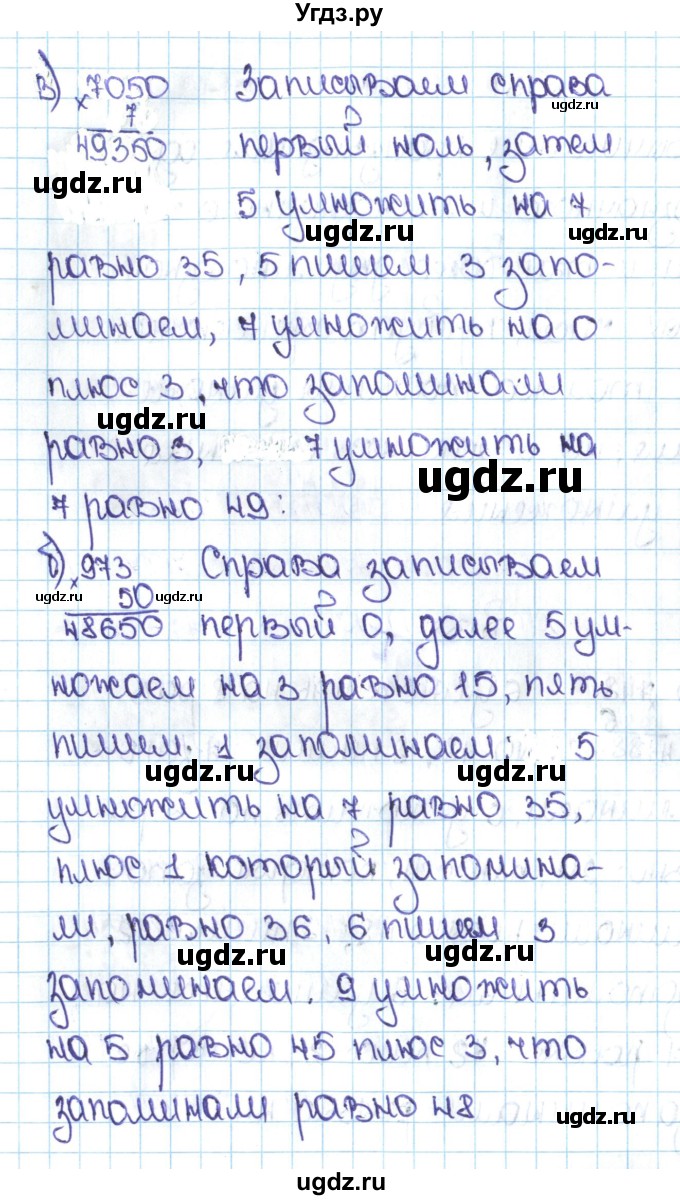 Угдз.ру
в) ×7050 Записываем справа
ugdz.ru
7
49350 первый ноль, затем
ugdz.ru
5 умножить на 7
ugdz.ru ugdz.ru
равно 35, 5 пишем 3 запо-
минаем, 7 умножить на 0
плюс 3, что запоминали
ugdz.ru
равно 3, 7 умножить на
ugdz.ru
7 равно 49:
б) ×973 Справа записываем
ugdz.ru 50 ugdz.ru ugdz.ru
48650 первый 0, далее 5 ум-
ножаем на 3 равно 15, пять
пишем. 1 запоминаем; 5
ugdz.ru ugdz.ru
умножить на 7 равно 35,
плюс 1 который запомина-
ли, равно 36, 6 пишем 3
ugdz.ru ugdz.ru
запоминаем. 9 умножить
на 5 равно 45 плюс 3, что
запоминали равно 48
ugdz.ru
ugdz.ru